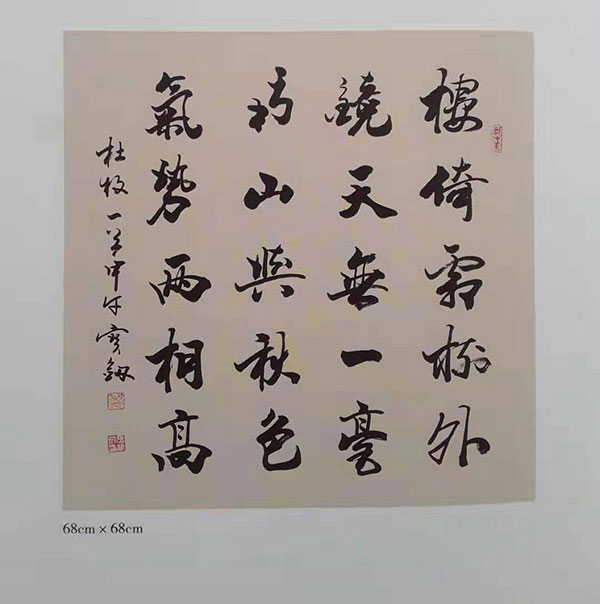 樓倚霜樹外
鏡天無一毫
南山與秋色
氣勢兩相高
杜牧一首甲午寶劍
68cm × 68cm